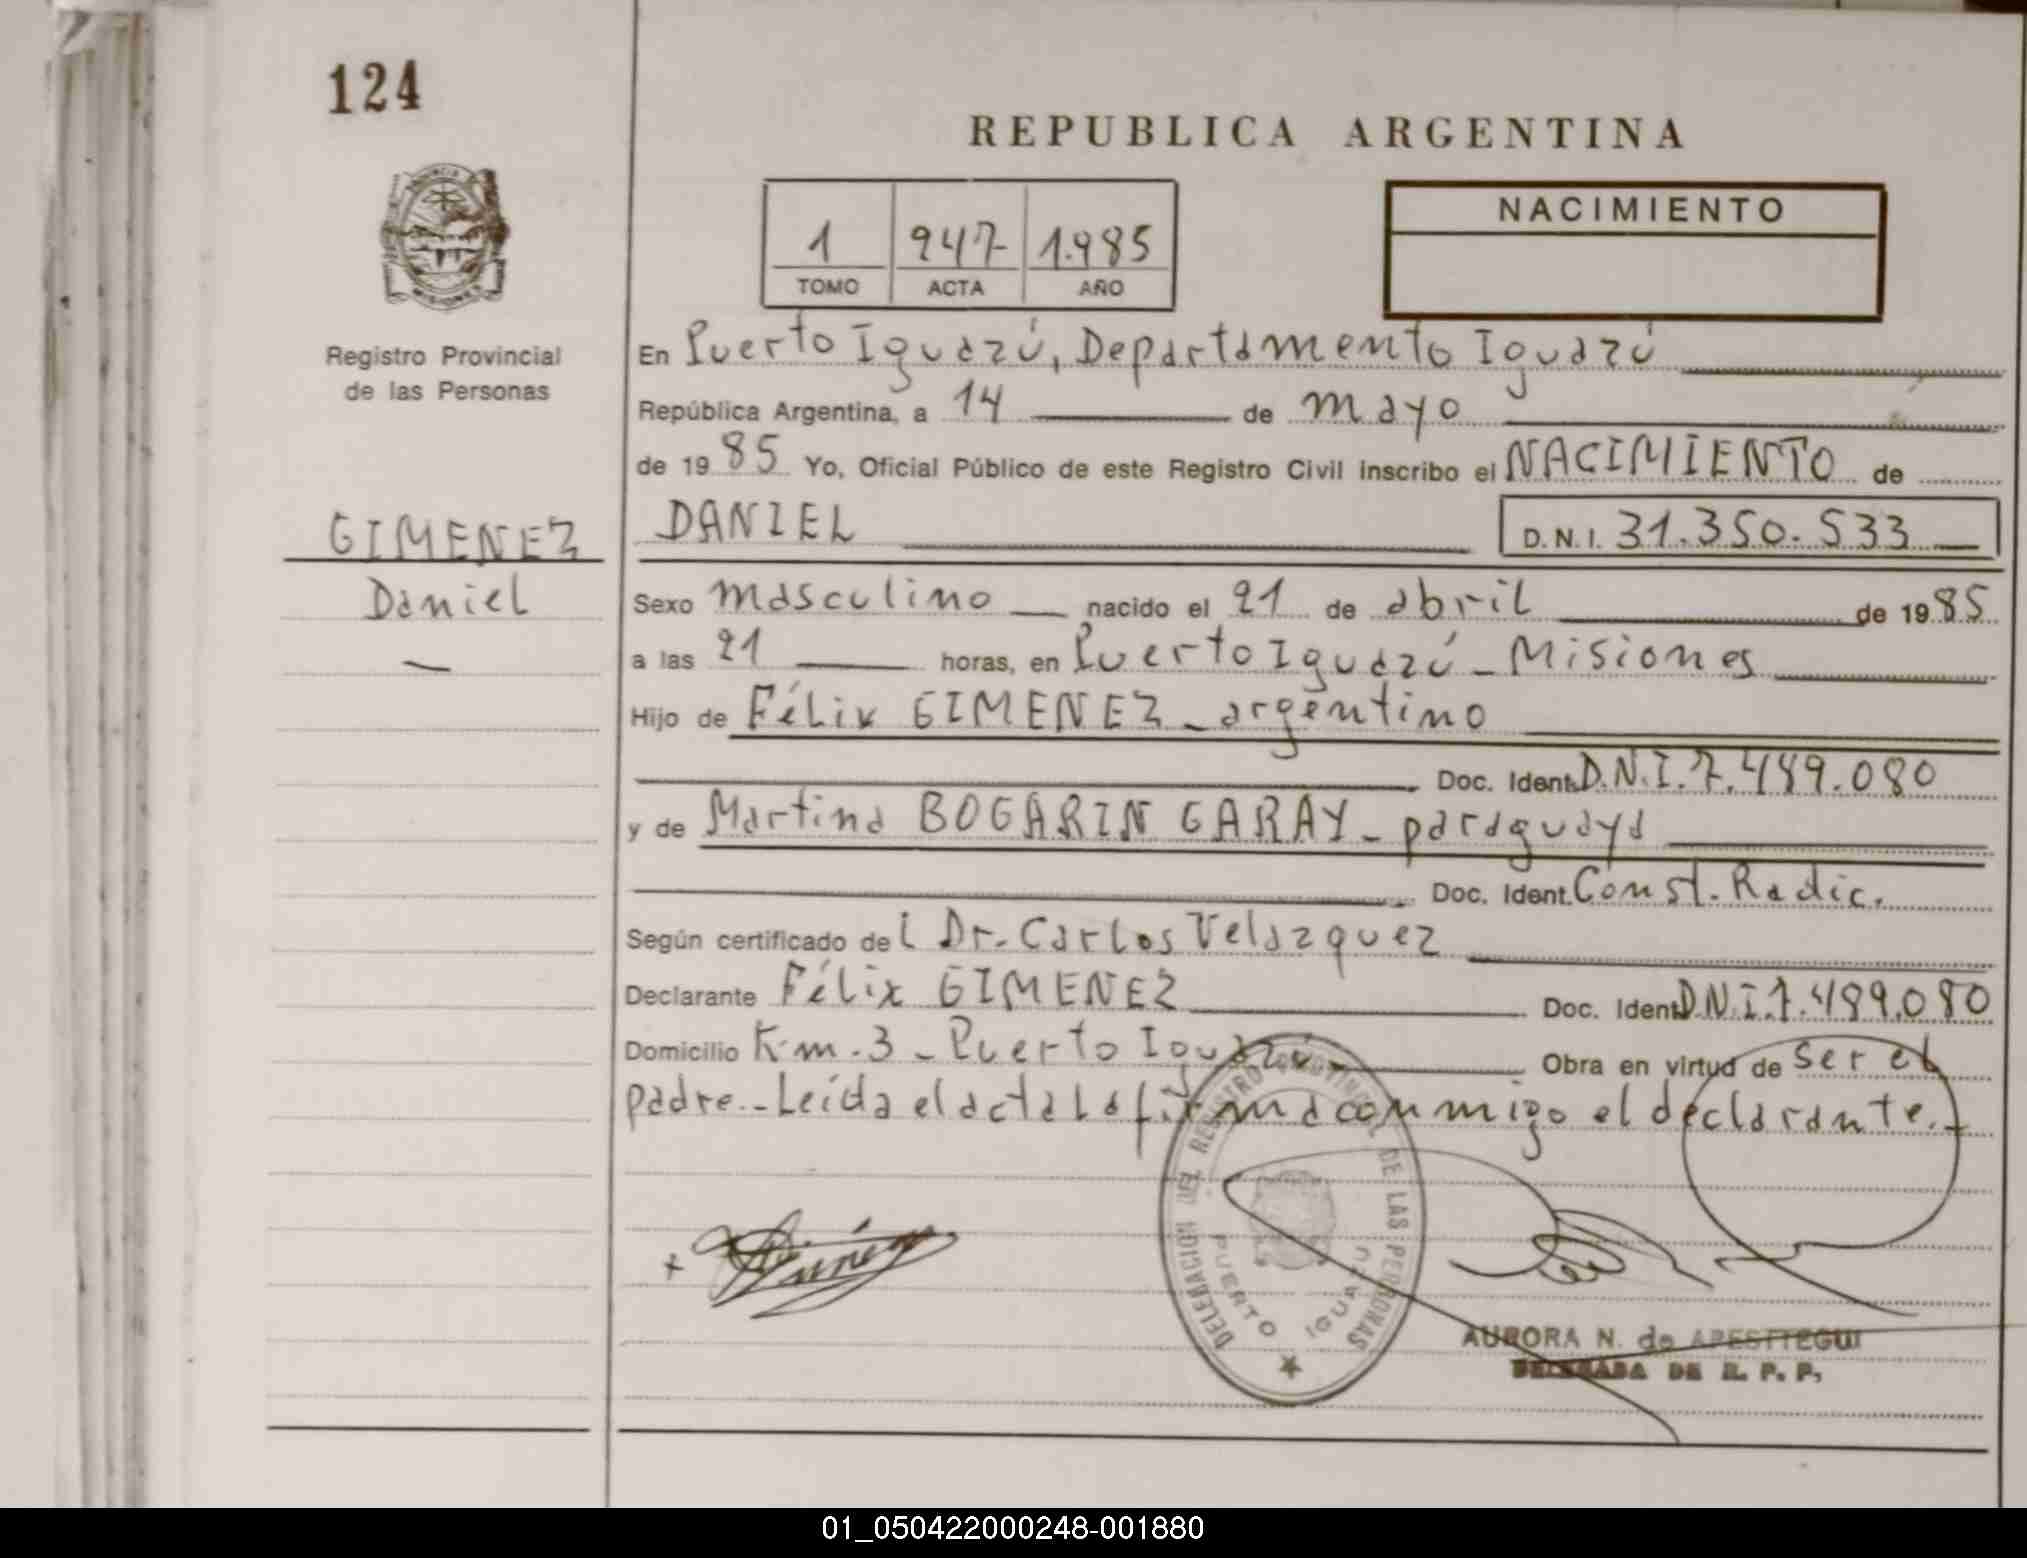 124
REPUBLICA ARGENTINA
1 247 1.985
TOMO ACTA AÑO
NACIMIENTO
MISIONES
Registro Provincial
de las Personas
En Puerto Iguazú, Departamento Iguazú
República Argentina, a 14 de mayo
de 1985 Yo, Oficial Público de este Registro Civil inscribo el NACIMIENTO de
GIMENEZ
Daniel
DANIEL D.N.I. 31.350.533
Sexo masculino nacido el 21 de abril de 1985
a las 21 horas, en Puerto Iguazú - Misiones
Hijo de Félix GIMENEZ - argentino
Doc. Ident. D.N.I. 7.489.080
y de Martina BOGARIN GARAY - paraguaya
Doc. Ident. Const. Radic.
Según certificado del Dr. Carlos Velazquez
Declarante Félix GIMENEZ Doc. Ident. D.N.I. 7.489.080
Domicilio Km. 3 - Puerto Iguazú - Obra en virtud de ser el
padre.- Leída el acta la firma conmigo el declarante.-
DELEGACION DEL REGISTRO PROVINCIAL DE LAS PERSONAS
PUERTO IGUAZU
AURORA N. de APESTTEGUI
DELEGADA DE R. P. P.
01_050422000248-001880